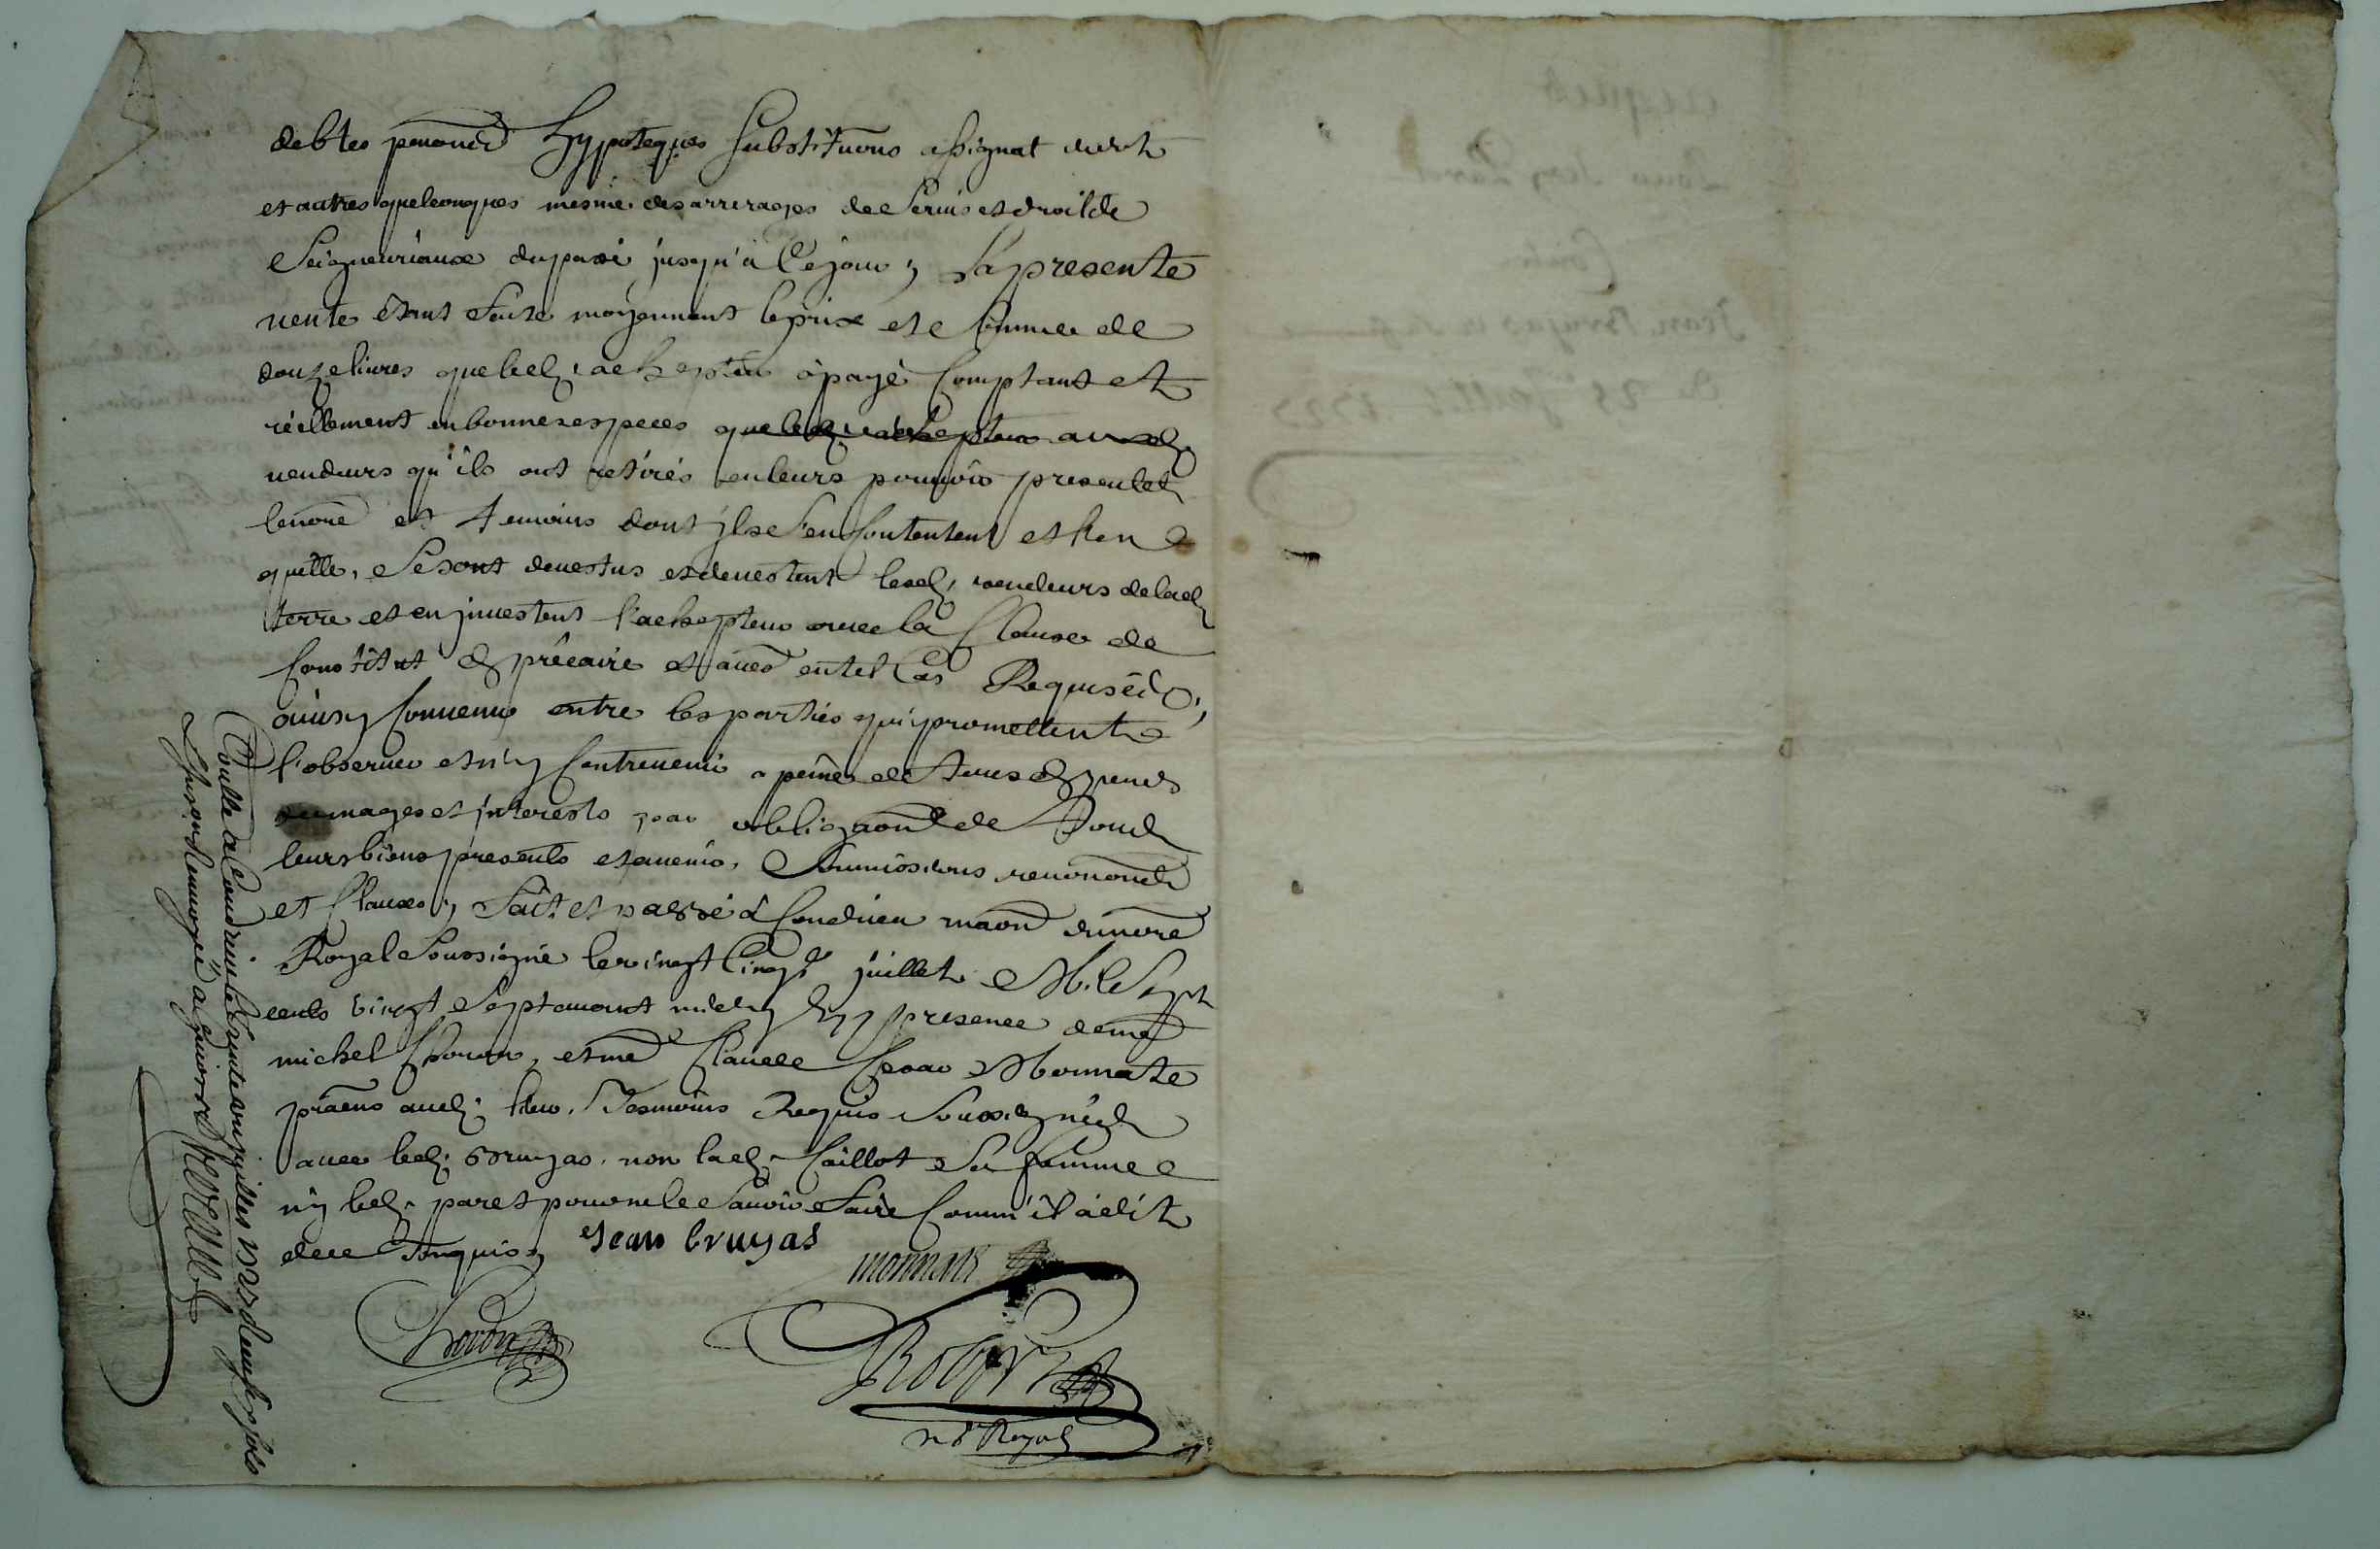 debtes pensions hypoteques substitutions assignat
et autres quelconques mesme des arrerages de servis et droit de
Seigneuriaux du passé jusqu'à ce jour, la presente
vente etant faite moyennant le prix et somme de
douze livres que led. achepteur à payé comptant et
réellement en bonnes especes que led. achepteur aux d.
vendeurs qu'ils ont retirés en leurs pouvoir present led.
no.re et temoins dont ils s'en contentent et l'en
quitte, se sont devestus et devestent lesd. vendeurs de lad.
terre et en jnvestent l'achepteur avec la clause de
constitut de précaire et autres en tel cas Requises,
ainsy convenu entre les parties qui promettent
l'observer et n'y contrevenir a peine de tous depends
dommages et jnterests par obligaon de tous
leurs biens presents et avenir, soumissions renonons
et clauses, fait et passé à Condrieu maon du no.re
Royal soussigné le vingt cinq.e juillet Mil sept
cents vingt sept avant midy En presence de m.e
michel Chovon, et m.e Claude Cesar Monnate
praens aud. lieu, Tesmoins Requis soussignés
avec led. Bruyas, non lad. Caillot sa femme
ny led. paret pour ne le savoir faire comm'il à dit
de ce Enquis,
Jean bruyas
monnate
Chovon
Robert
n.re Royal
Controllé à Condrieu le trente un juillet 1727 douze sols